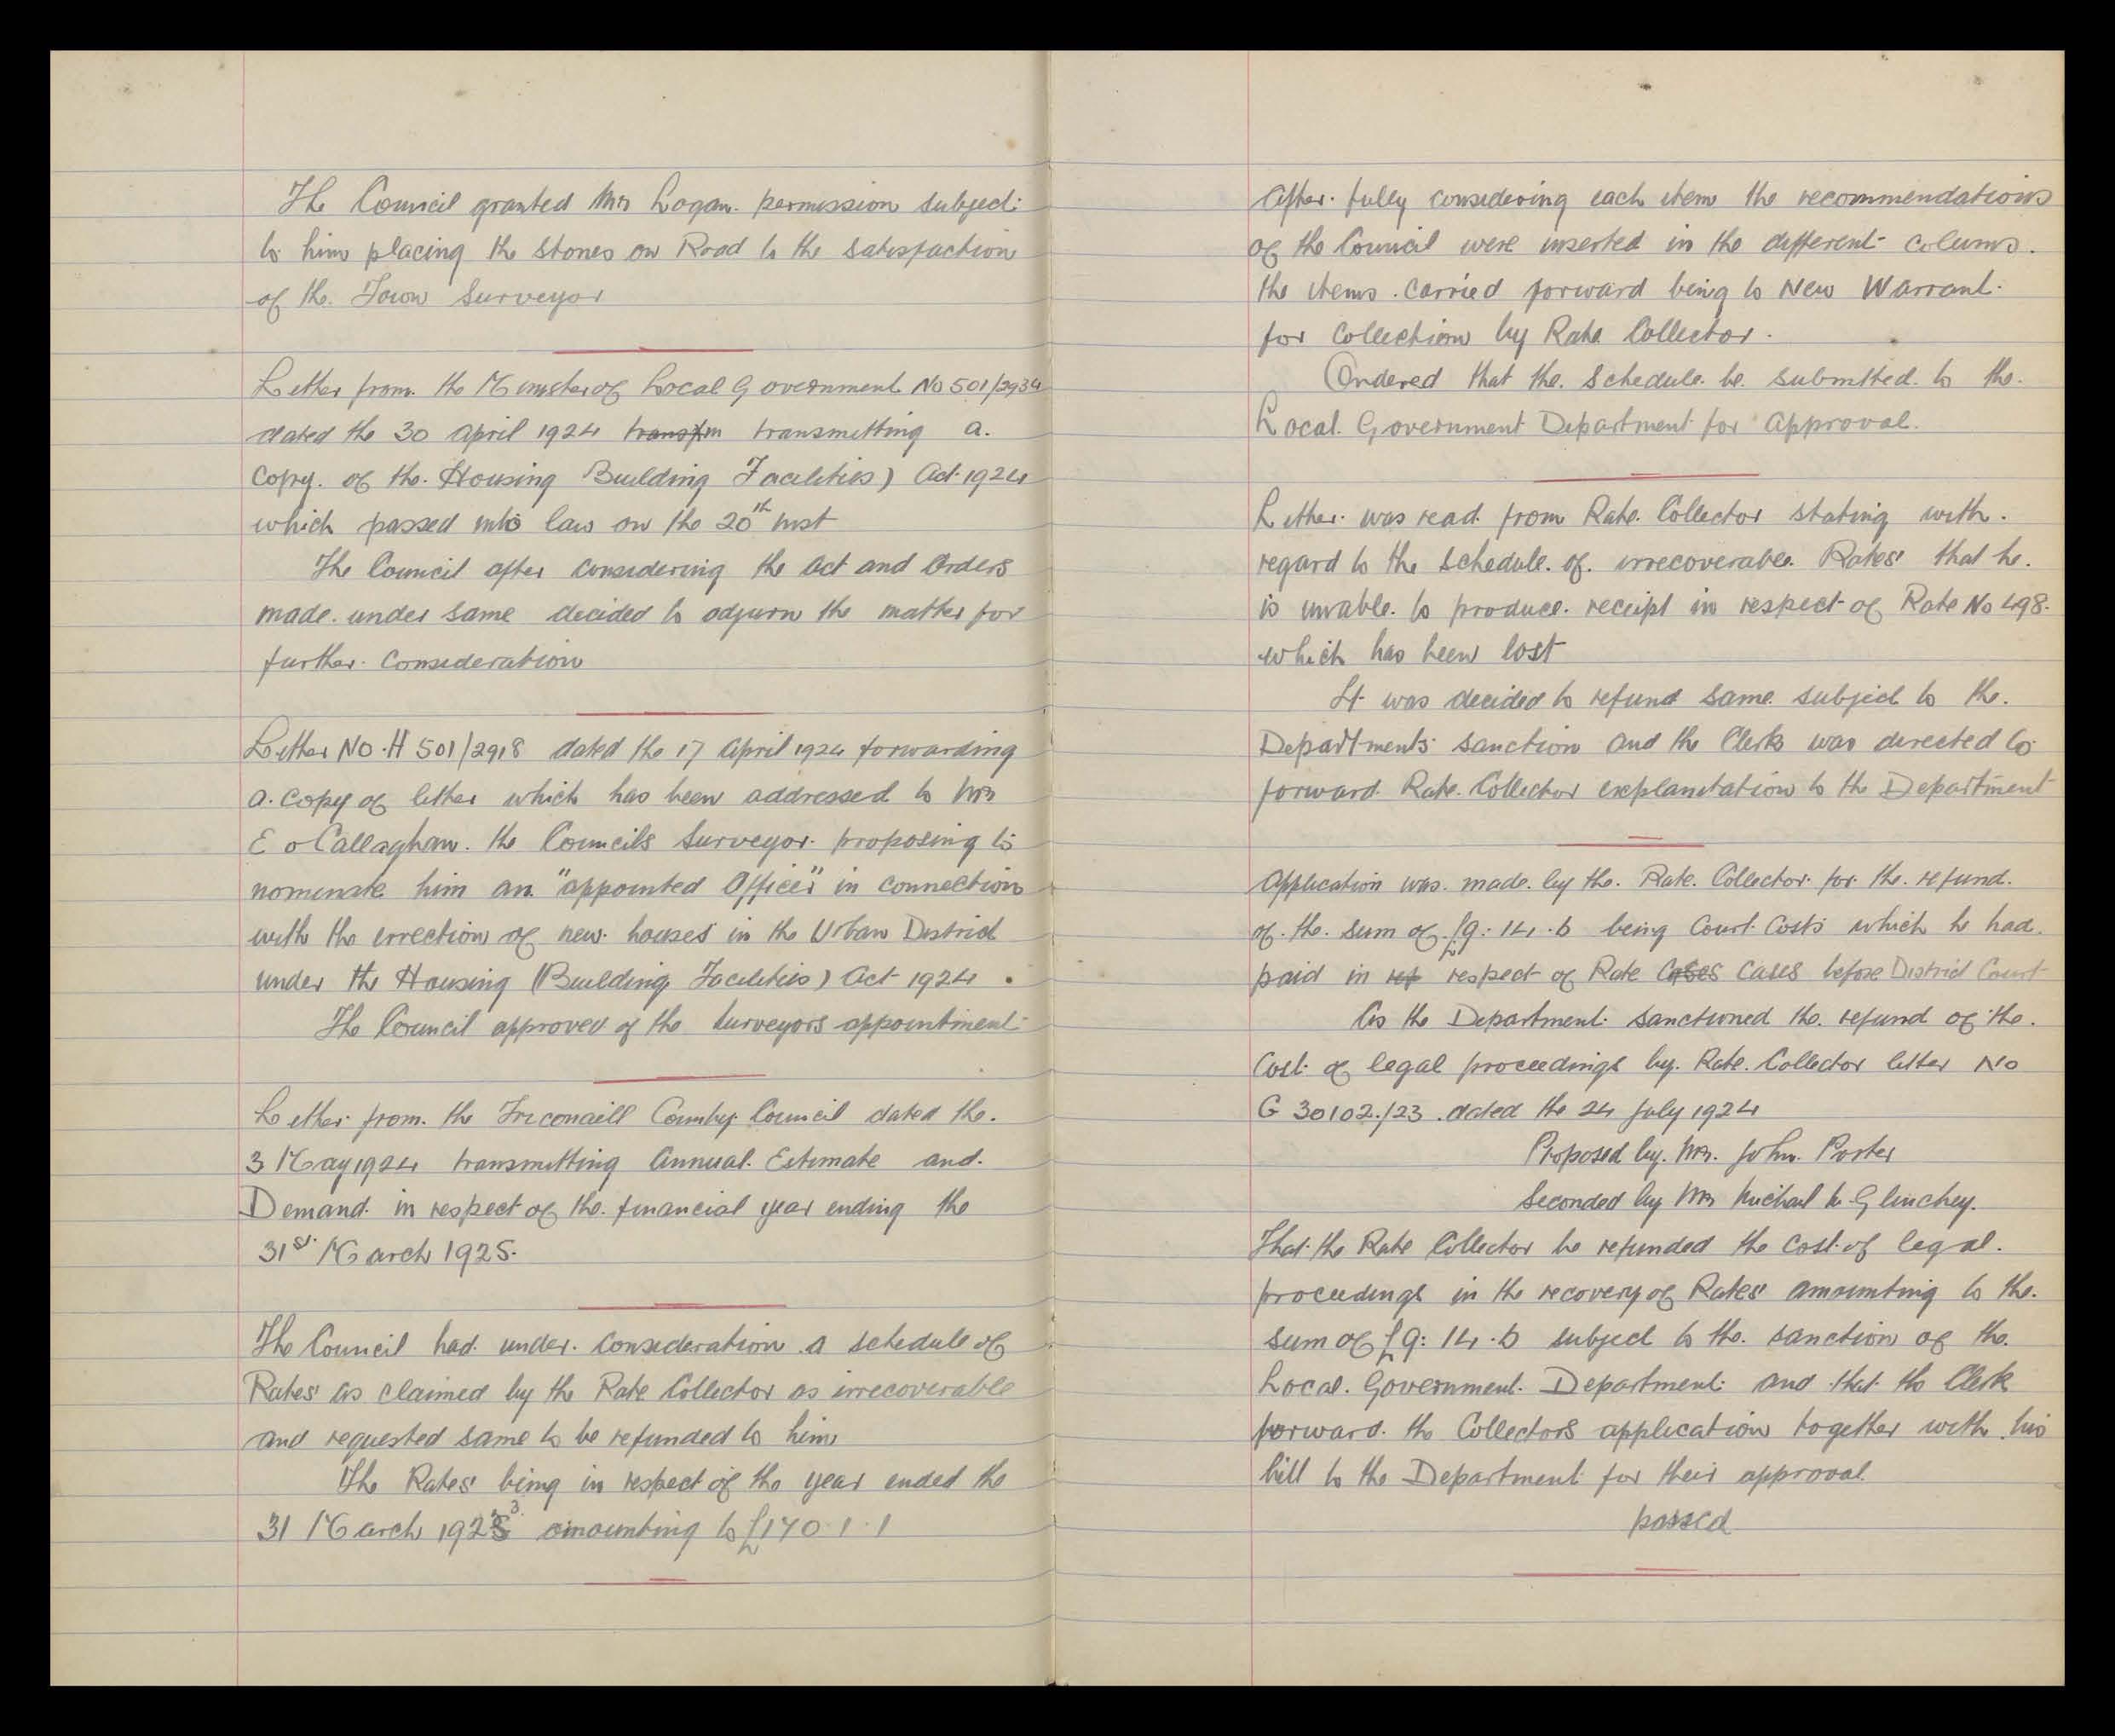 The Council granted Mr Logan permission subject
to him placing the stones on Road to the satisfaction
of the Town Surveyor
Letter from the Minister of Local Government No 501/2934
dated the 30 April 1924 transfm transmitting a
copy of the Housing Building Facilities) Act 1924
which passed into law on the 20th inst
The Council after considering the Act and Orders
made under same decided to adjurn the matter for
further consideration
Letter No H 501/2918 dated the 17 April 1924 forwarding
a copy of letter which has been addressed to Mr
E o Callaghan the Councils Surveyor proposing to
nominate him an "appointed Officer" in connection
with the errection of new houses in the Urban District
under the Housing (Building Facilities) Act 1924.
The Council approved of the Surveyors appointment
Letter from the Tirconaill County Council dated the
3 May 1924 transmitting Annual Estimate and
Demand in respect of the financial year ending the
31st March 1925.
The Council had under consideration a schedule of
Rates as claimed by the Rate Collector as irrecoverable
and requested same to be refunded to him
The Rates being in respect of the year ended the
31 March 1923 amounting to £170.1.1
After fully considering each item the recommendations
of the Council were inserted in the different colums.
the items carried forward being to New Warrant
for collection by Rate Collector.
Ordered that the Schedule be submitted to the
Local Government Department for Approval.
Letter was read from Rate Collector stating with
regard to the schedule of irrecoverable Rates that he
is unable to produce receipt in respect of Rate No 498
which has been lost
It was decided to refund same subject to the
Departments sanction and the Clerk was directed to
forward Rate Collector explanitation to the Department
Application was made by the Rate Collector for the refund
of the sum of £9:14.6 being Court Costs which he had
paid in ref respect of Rate Cases Cases before District Court
As the Department sanctioned the refund of the
Cost of legal proceedings by Rate Collector letter No
G 30102/23 dated the 24 July 1924
Proposed by Mr. John Porter
Seconded by Mr Michael McGlinchey.
That the Rate Collector be refunded the cost of legal
proceedings in the recovery of Rates amounting to the
sum of £9:14.6 subject to the sanction of the
Local Government Department and that the Clerk
forward the Collectors application together with his
bill to the Department for their approval
passed